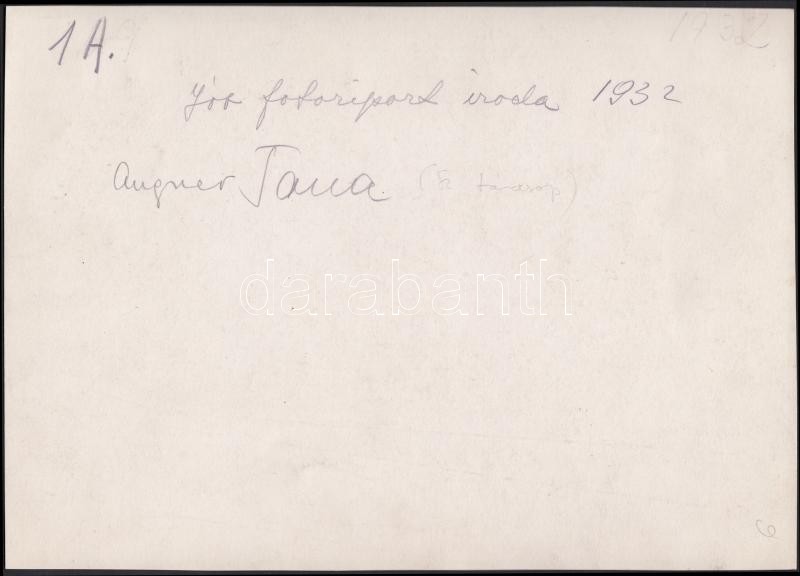 1 A.
1932
Jób fotoriport iroda 1932
Augner Tana
darabanth
6